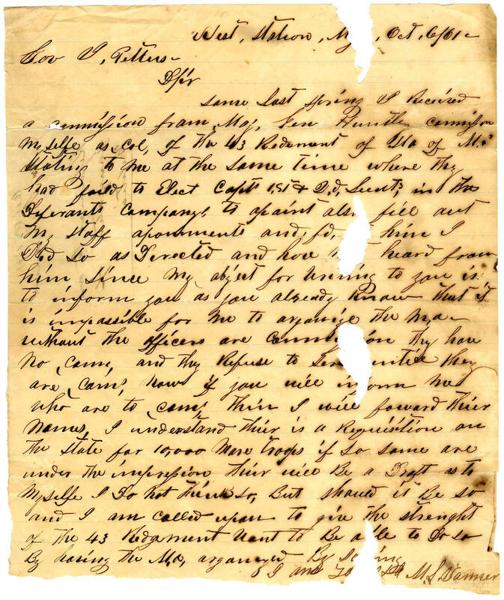 West, Station, Oct, 6/61
Gov J, Pettus
Sir
Some Last Spring I Received
a commission from Maj, Gen comission
Myselfe as Col, of the 43 Redgment of the of
Stating to me at the same time where thy
had faild to Elect Capts 1st & 2,d Lieuts in the
Diferants Companys to apoint also fill out
My, staff apoments and him I
Did So as Derected and have heard from
him Since My object for to you is
to inform you as you already Know that it
is impossible for Me to organise the
without the officers are Commission thy have
No Coms, and thy Refuse to Serve untill they
are Coms, Now if you will inform Me
who are to Coms, then I will foward their
Names, I understand thier is a Requisition on
the State for 10,000 More troops if So Some are
under the impression thier will Be a Draft as to
Myselfe I Do not think So, But should it Be So
and I am Called upon to give the strenght
of the 43 Redgment Want to Be able to Do So
By having the organised By
I am M, S,